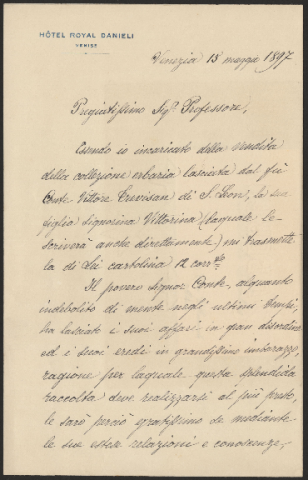 HÔTEL ROYAL DANIELI
VENISE
Venezia 15 maggio 1897
Pregiatissimo Sigr. Professore,
Essendo io incaricato della vendita
della collezione erbaria lasciata dal fù
Conte Vittore Trevisan di S. Leon, la sua
figlia signorina Vittorina (laquale le
scriverà anche direttamente) mi trasmette
la di Lei cartolina 12 corrte
Il povero signor Conte, alquanto
indebolito di mente negli ultimi tempi,
ha lasciato i suoi affari in gran disordine
ed i suoi eredi in grandissimo imbarazzo,
ragione per laquale questa splendida
raccolta deve realizzarsi al più presto,
le sarò perciò gratissimo se mediante
le sue estese relazioni e conoscenze,